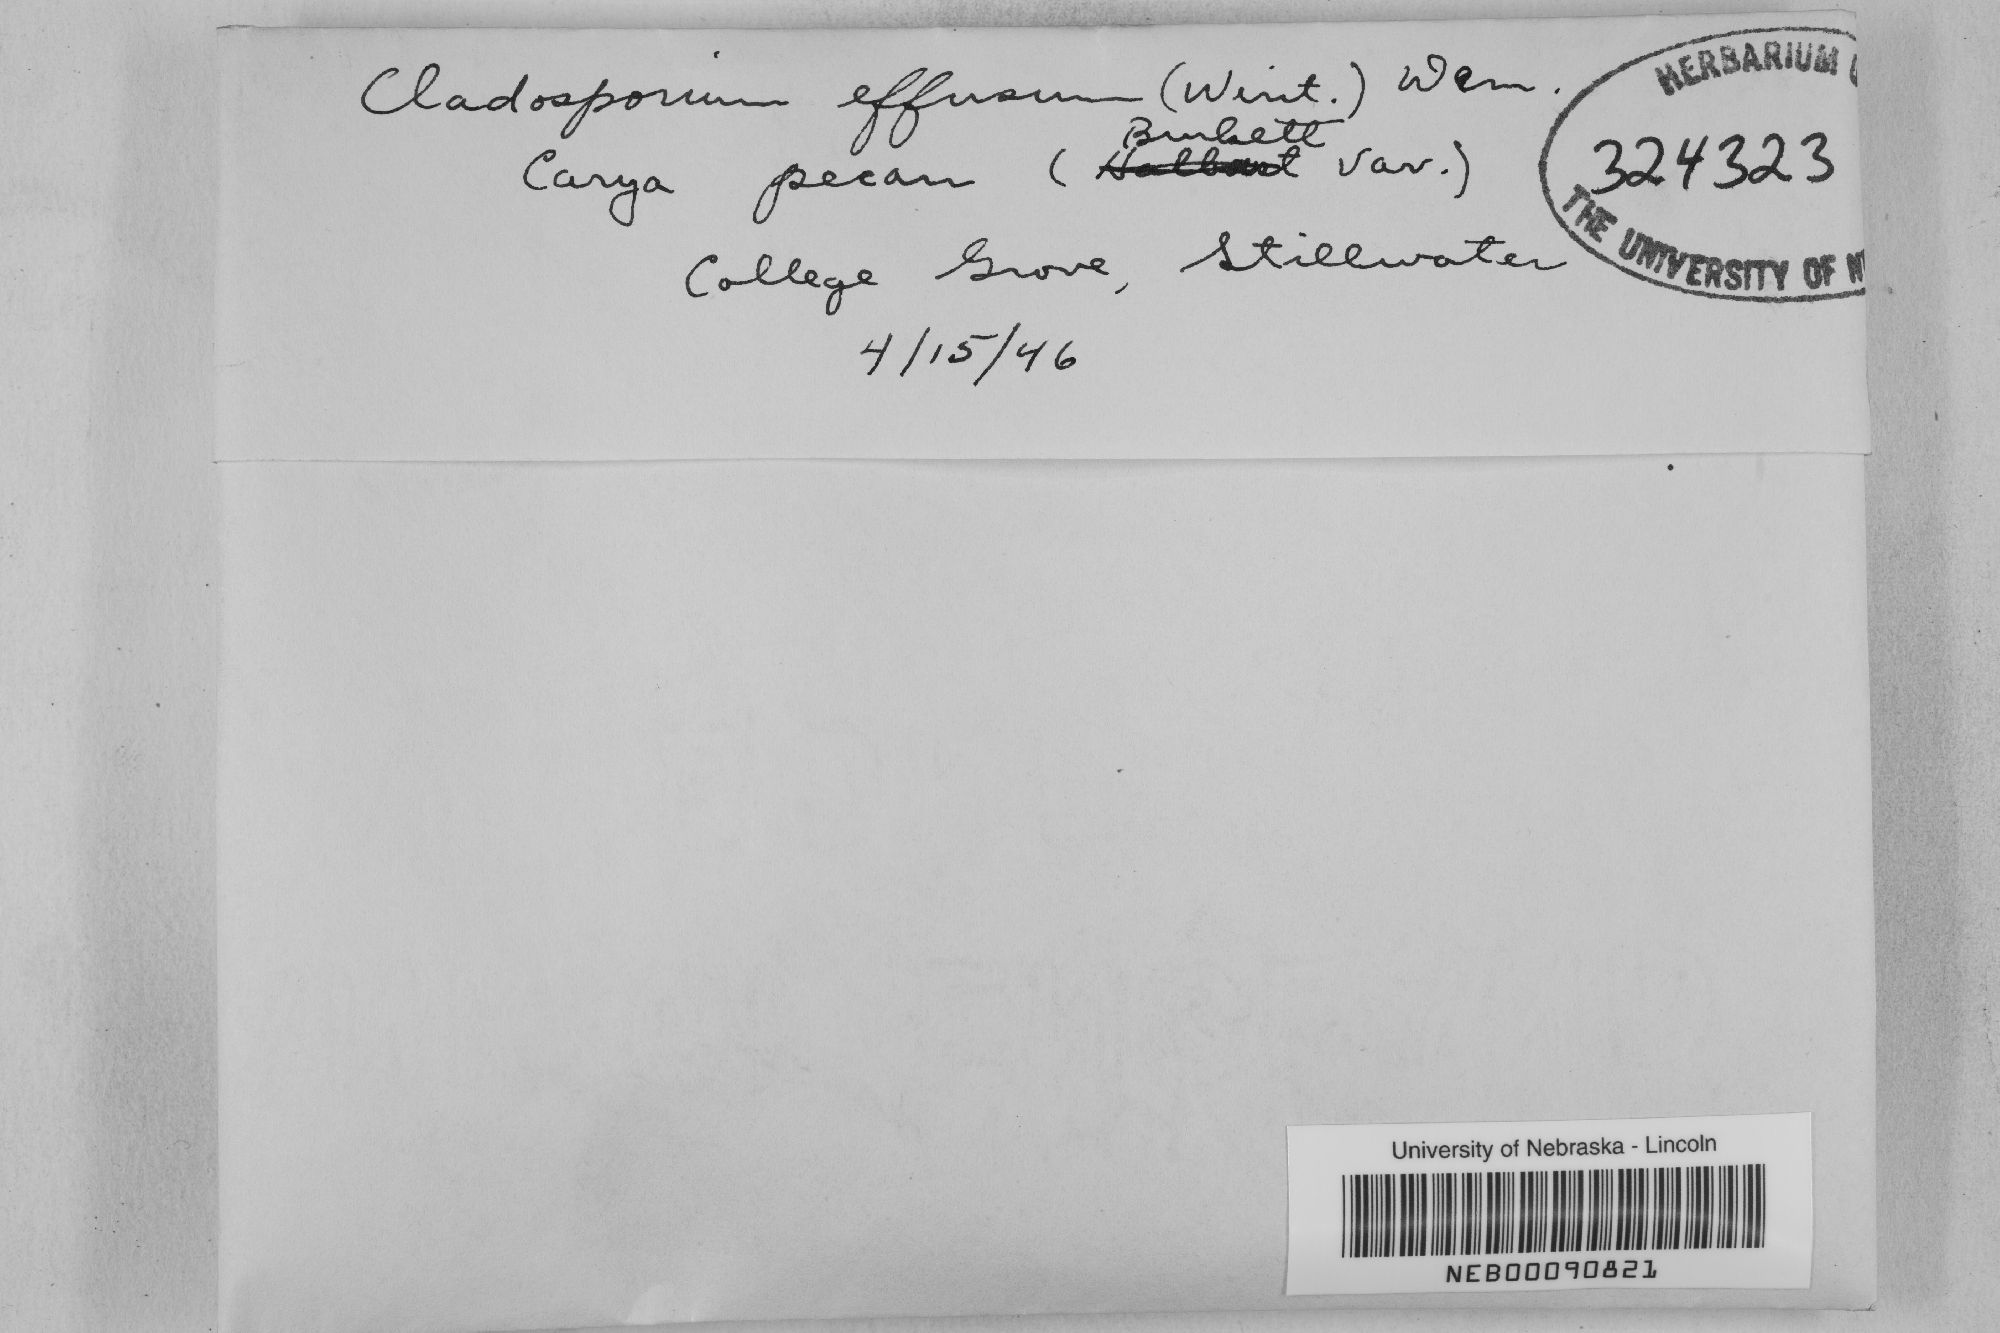 Cladosporium effusum (Wint.) Dem.
Burkett
Carya pecan ( Halbert var.)
College Grove, Stillwater
4/15/46
HERBARIUM
324323
THE UNIVERSITY OF N
University of Nebraska - Lincoln
NEB00090821